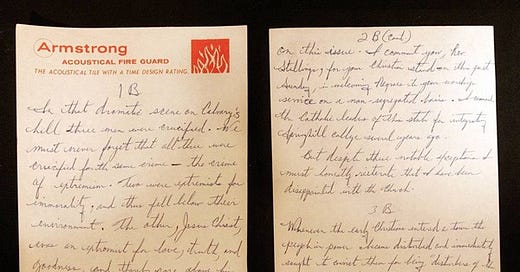 Armstrong
ACOUSTICAL FIRE GUARD
THE ACOUSTICAL TILE WITH A TIME DESIGN RATING
1 B
In that dramatic scene on Calvary's
hill three men were crucified. We
must never forget that all three were
crucified for the same crime — the crime
of extremism. Two were extremists for
immorality, and thus fell below their
environment. The other, Jesus Christ,
was an extremist for love, truth, and
goodness, and thereby rose above his
2 B (cont)
on this issue. I commend you, Rev
Stallings, for your Christian stand on this past
Sunday in welcoming Negroes to your worship
service on a non-segregated basis. I commend
the Catholic leaders of this state for integrating
Springhill college several years ago.
But despite these notable exceptions I
must honestly reiterate that I have been
disappointed with the church.
3 B
Whenever the early Christians entered a town the
people in power became disturbed and immediately
sought to convict them for being "disturbers of the